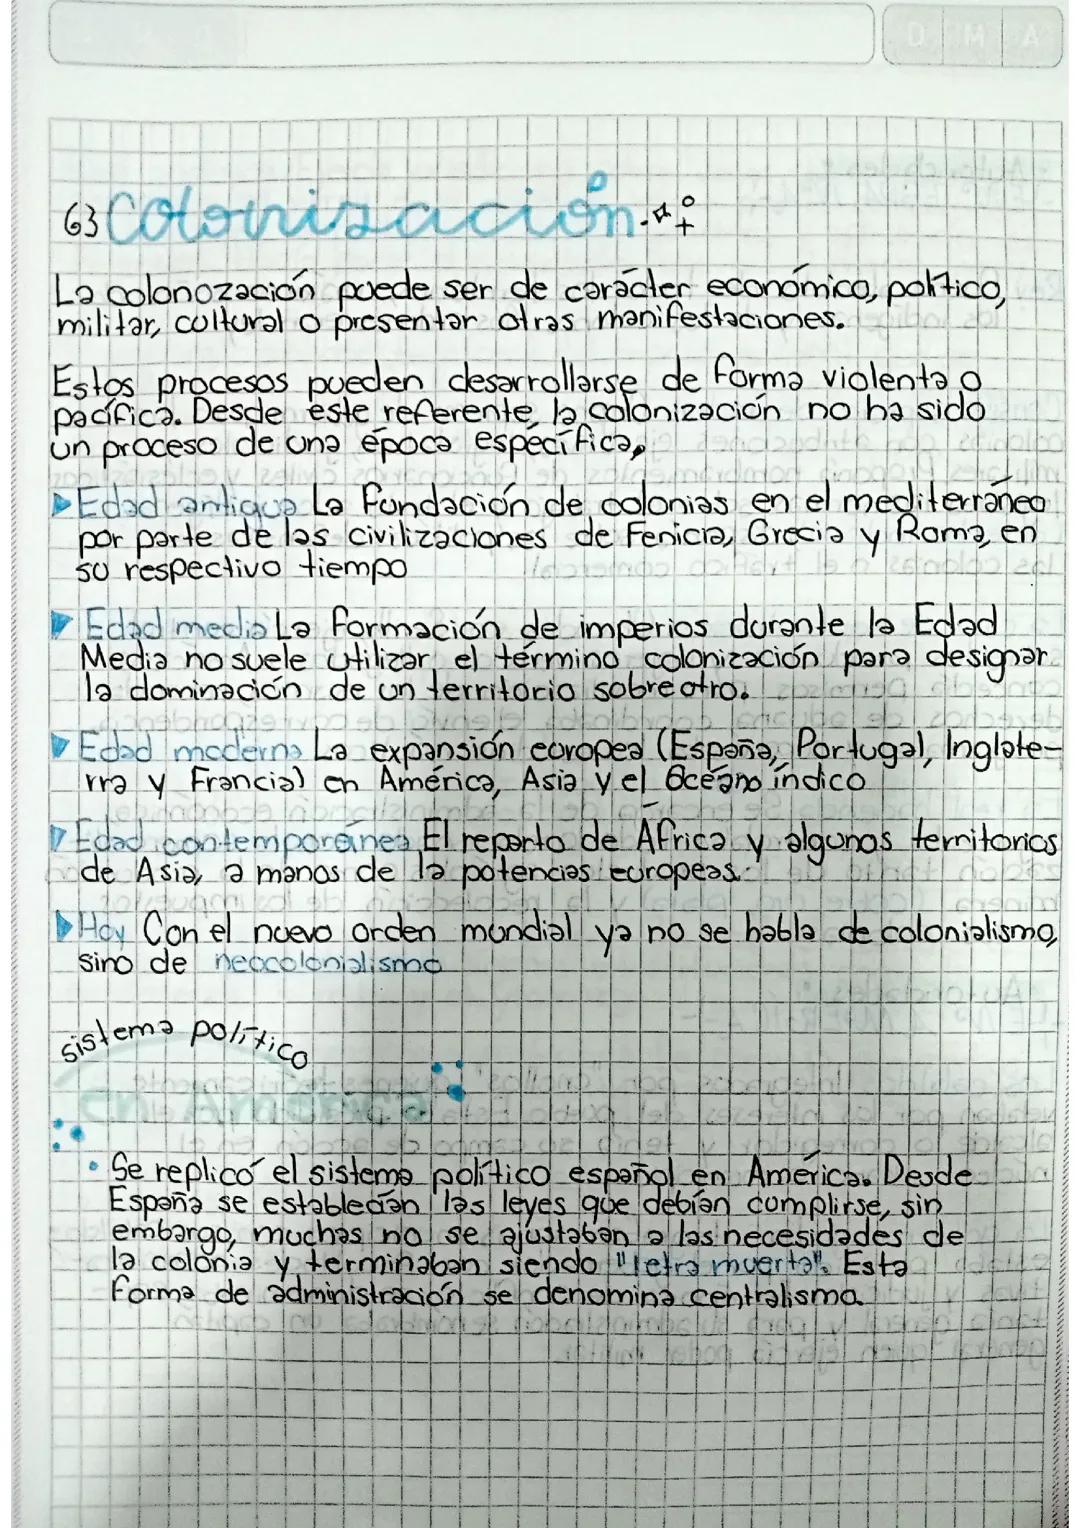 63 Colonización.
La colonozación puede ser de carácter económico, político,
militar, cultural o presentar otras manifestaciones.
Estos procesos pueden desarrollarse de forma violenta o
pacífica. Desde este referente, la colonización no ha sido
un proceso de una época específica,
Edad antigua La fundación de colonias en el mediterráneo
por parte de las civilizaciones de Fenicia, Grecia y Roma, en
su respectivo tiempo
Edad media La formación de imperios durante la Edad
Media no suele utilizar el término colonización para designar
la dominación de un territorio sobre otro.
Edad moderna La expansión europea (España, Portugal, Inglate-
rra y Francia) en América, Asia y el Océano índico
Edad contemporánea El reparto de África y algunos territorios
de Asia, a manos de la potencias europeas.
Hoy Con el nuevo orden mundial ya no se habla de colonialismo,
sino de neocolonialismo
sistema político
en América
• Se replicó el sistema político español en América. Desde
España se establecían las leyes que debían cumplirse, sin
embargo, muchas no se ajustaban a las necesidades de
la colonia y terminaban siendo "letra muerta". Esta
forma de administración se denomina centralismo.